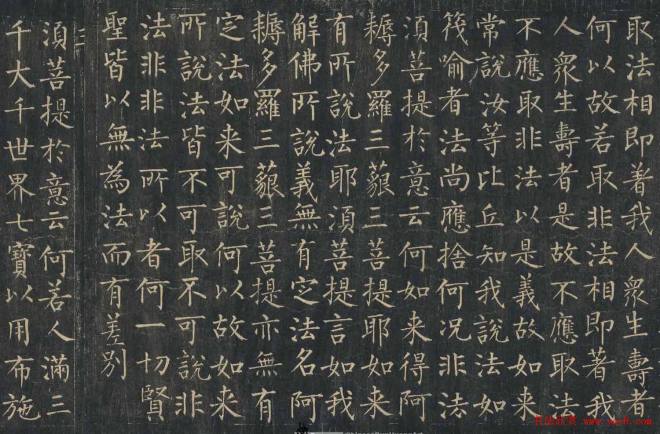 取法相即著我人衆生壽者
何以故若取非法相即著我
人衆生壽者是故不應取法
不應取非法以是義故如来
常說汝等比丘知我說法如
筏喻者法尚應捨何况非法
須菩提於意云何如来得阿
耨多羅三藐三菩提耶如来
有所說法耶須菩提言如我
解佛所說義無有定法名阿
耨多羅三藐三菩提亦無有
定法如来可說何以故如来
所說法皆不可取不可說非
法非非法所以者何一切賢
聖皆以無為法而有差别
三
須菩提於意云何若人滿三
千大千世界七寶以用布施